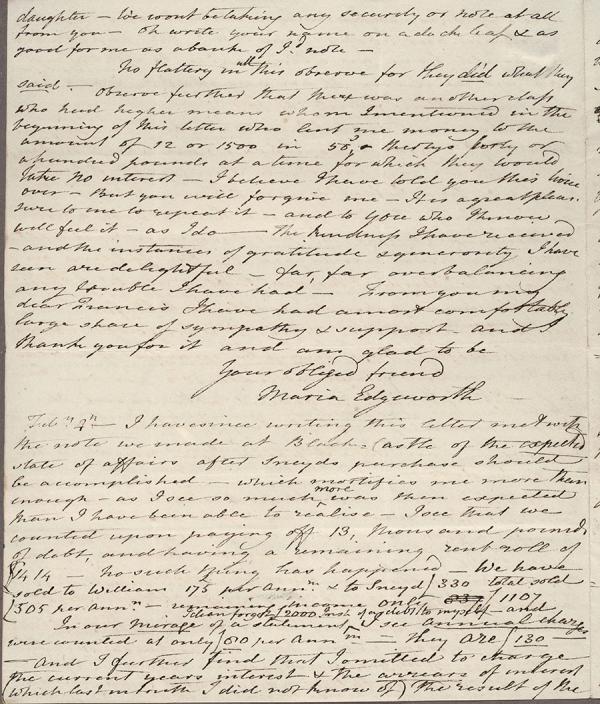 daughter – We wont be taking any security or note at all
from you – Oh write your name on a dock leaf & as
good for me as a bank of I.d note –
No flattery in all this observe for they did what they
said – Observe further that there was another class
who had higher means whom I mentioned in the
beginning of this letter who lent me money to the
amount of 12 or 1500 in 50, thirtys forty or
a hundred pounds at a time for which they would
take no interest – I believe I have told you this twice
over – But you will forgive me – It is a great pleas-
sure to me to repeat it – and to you who I know
will feel it – as I do – The kindness I have received
– and the instances of gratitude & generosity I have
seen are delightful – far, far overbalancing
any trouble I have had – From you my
dear Francis I have had a most comfortable
large share of sympathy & support and I
thank you for it and am glad to be
Your obliged friend
Maria Edgeworth
Feby – I have since writing this letter met with
the note we made at Black-Castle of the expected
state of affairs after Sneyds purchase should
be accomplished – which mortifies me more than
enough – as I see so much more was then expected
than I have been able to realise – I see that we
counted upon paying off 13, thousand pounds
of debt, and having a remaining rent roll of
£1414 – no such thing has happened – We have
sold to William 175 per Annm & to Sneyd £330 total sold
£505 per Annm – remaining income only £1107
I then forgot £2000 Irish of my debt to myself – and
In our mirage of a statement I see annual charges
were counted at only £60 per Annm – they are £130 –
– and I further find that I omitted to charge
the current years interest & the arrears of interest
(which last month I did not know of) The result of the